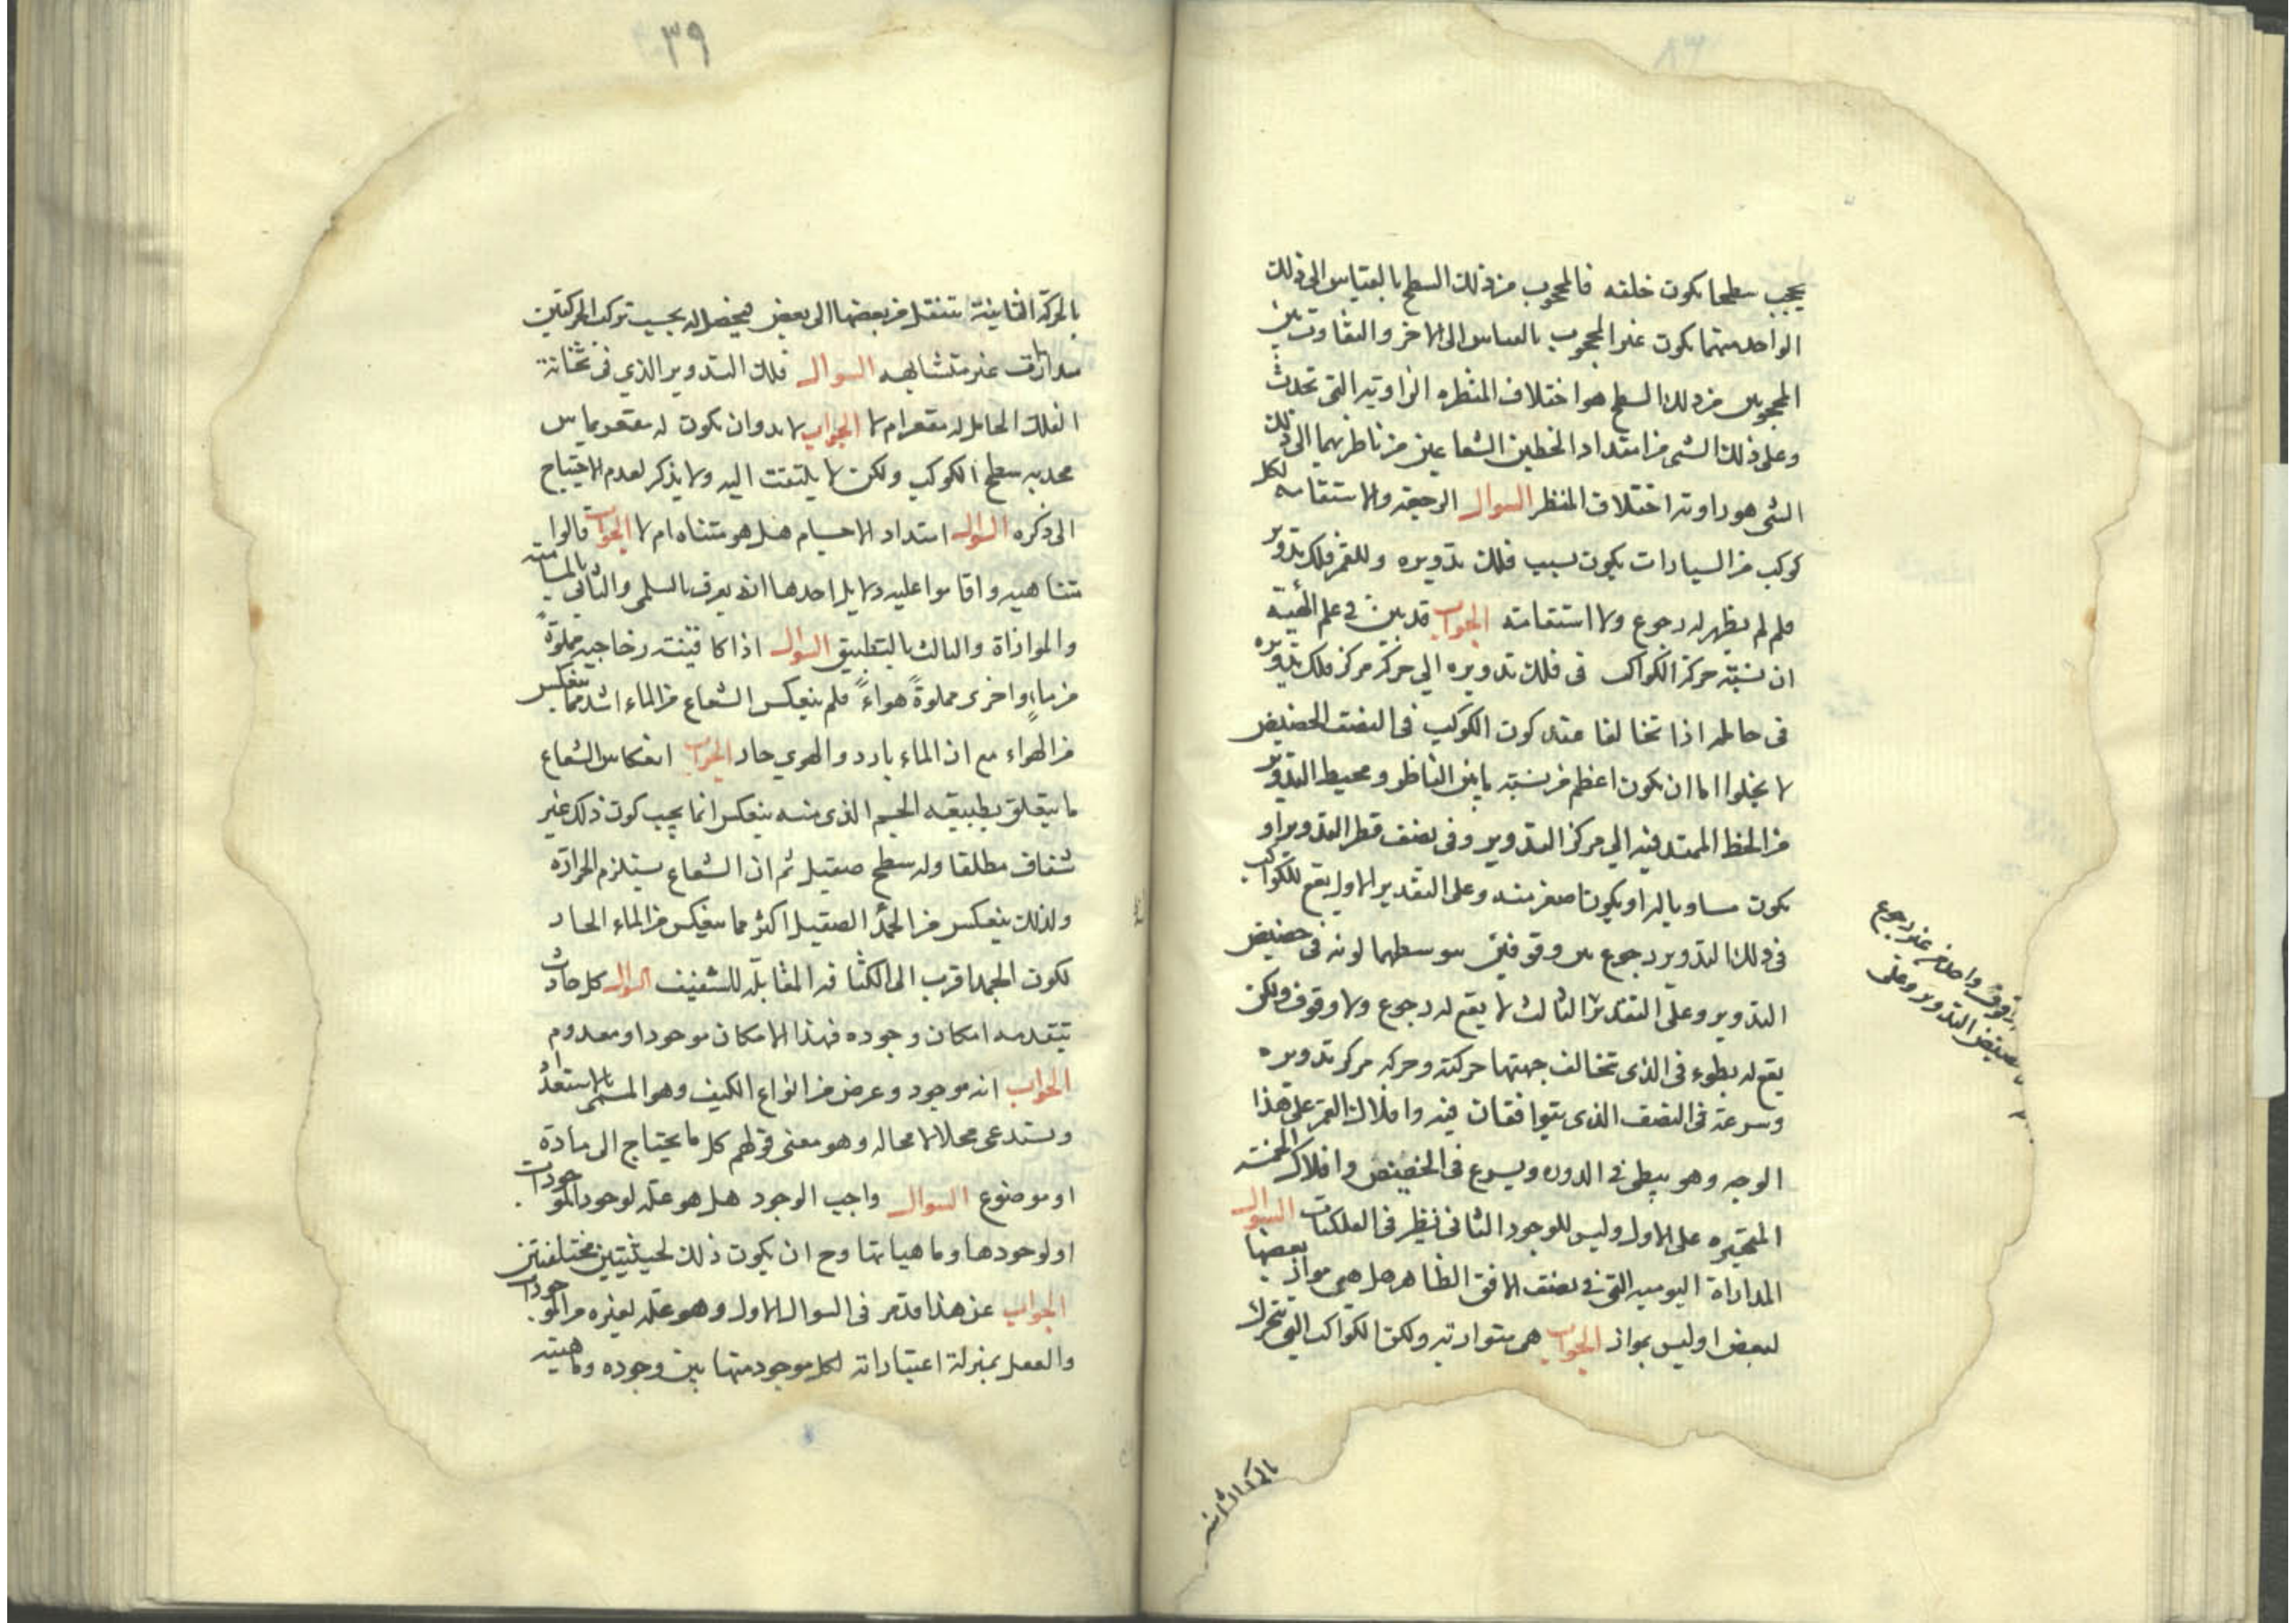 يحجب سطحا يكون خلفه فالمحجوب من ذلك السطح بالقياس الى ذلك
الواحد منهما يكون غير المحجوب بالقياس الى الاخر والتفاوت بين
المحجوبين من ذلك السطح هو اختلاف المنظره الزاوية التى تحدث
وعلى ذلك الشى من امتداد الخطين الشعاعين من ناظريهما الى ذلك
الشى هو زاوية اختلاف المنظر السوال الرجعة والاستقامه لكل
كوكب من السيارات يكون بسبب فلك تدويره وللقمر فلك تدوير
فلم لم يظهر له رجوع ولا استقامة الجواب قد بين فى علم الهيئة
ان نسبة حركة الكواكب فى فلك تدويره الي حركة مركز فلك تدويره
فى حامله اذا تخالفا عند كون الكوكب فى النصف الحضيض
لا يخلوا اما ان يكون اعظم من نسبة ما بين الناظر ومحيط التدوير
من الخط الممتد فيه الي مركز التدوير وفى نصف قطر التدوير او
يكون مساويا له او يكون اصغر منه وعلى التقدير الاول يقع للكواكب
فى ذلك التدوير رجوع بين وقوفين يتوسطهما لونه فى حضيض
التدوير وعلى التقدير الثالث لا يقع له رجوع ولا وقوف ولكن
يقع له بطوء فى الذى تخالف جهتها حركته وحركه مركز تدويره
وسرعة فى النصف الذى يتوافقان فيه وافلاك القمر على هذا
الوجه وهو يبطى فى الدوره ويسرع فى الحضيض وافلاك الخمسة
المتحيره على الاول وليس للوجود الثانى نظير فى الفلكيات السوال
المداراة اليوميه التى فى نصف الافق الظاهر هل هى مواز بعضها
لبعض او ليس بمواز الجواب هى متوازية ولكن الكواكب التى تتحرك
وقوف واحد من غير رجوع
حضيض التدوير وعلى
بالحركة الثانيه
٣٩
بالحركة الثانية تنتقل من بعضها الى بعض فيحصل له بحسب تركب الحركتين
مدارات غير متشابهه السوال فلك التدوير الذي فى ثخانة
الفلك الحامل له مقعر ام لا الجواب لا بد وان يكون له مقعر يماس
محدبه سطح الكوكب ولكن لا يلتفت اليه ولا يذكر لعدم الاحتياج
الى ذكره السوال امتداد الاجسام هل هو متناه ام لا الجواب قالوا
متناهيه واقاموا عليه دلايل احدها انه يعرف بالسلمى والثانى بالمسامتة
والموازاة والثالث بالتطبيق السوال اذا كا قنينة زجاجيه مملوة
من ماء واخرى مملوة هواء فلم ينعكس الشعاع من الماء اشد مما ينعكس
من الهواء مع ان الماء بارد والهوى حار الجواب انعكاس الشعاع
ما يتعلق بطبيعة الجسم الذى منه ينعكس انما يجب كون ذلك غير
شفاف مطلقا وله سطح صقيل ثم ان الشعاع يستلزم الحرارة
ولذلك ينعكس من الجمد الصقيل اكثر مما ينعكس من الماء الحار
لكون الجمد اقرب الى الكثافه المقابلة للشفيف السوال كل حادث
يتقدمه امكان وجوده فهذا الامكان موجود او معدوم
الجواب انه موجود وعرض من انواع الكيف وهو المسمى بالاستعداد
ويستدعى محلا لا محاله وهو معنى قولهم كل ما يحتاج الى مادة
او موضوع السوال واجب الوجود هل هو علة لوجود الموجودات
او لوجودها وماهياتها وح ان يكون ذلك لحيثيتين مختلفتين
الجواب عن هذا قد مر فى السوال الاول وهو علة لغيره من الموجودات
والعقل بمنزلة اعتباراته لكل موجود منها بين وجوده وماهيته